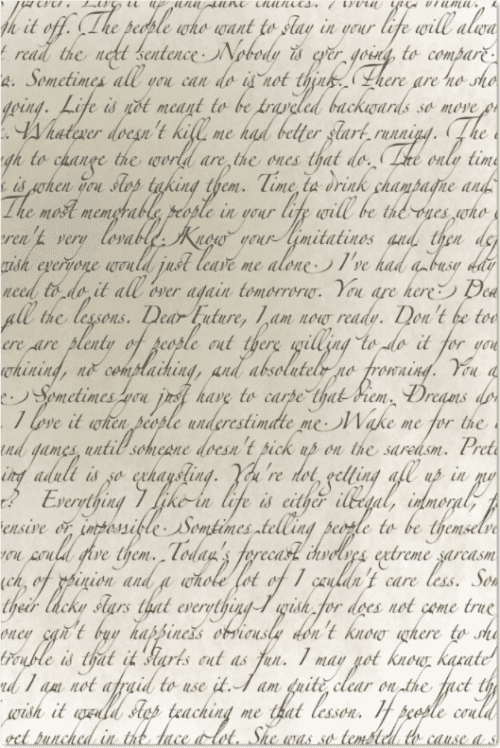 forever. Live it up and take chances. Avoid the drama.
gh it off. The people who want to stay in your life will alwa
t read the next sentence. Nobody is ever going to compare.
o. Sometimes all you can do is not think. There are no sho
going. Life is not meant to be traveled backwards so move
. Whatever doesn't kill me had better start running. The
gh to change the world are the ones that do. The only time
s is when you stop taking them. Time to drink champagne and
The most memorable people in your life will be the ones who
eren't very lovable. Know your limitatinos and then de
wish everyone would just leave me alone. I've had a busy day
need to do it all over again tomorrorw. You are here. Dea
all the lessons. Dear Future, I am now ready. Don't be too
ere are plenty of people out there willing to do it for you
whining, no complaining, and absolutely no frowning. You a
e. Sometimes you just have to carpe that diem. Dreams don
. I love it when people underestimate me. Wake me for the
and games until someone doesn't pick up on the sarcasm. Prete
ing adult is so exhausting. You're not getting all up in my
? Everything I like in life is either illegal, immoral, f
pensive or impossible. Somtimes telling people to be themselve
you could give them. Today's forecast involves extreme sarcasm
uch of opinion and a whole lot of I couldn't care less. Som
their lucky stars that everything I wish for does not come true
oney can't buy happiness obviously don't know where to sho
trouble is that it starts out as fun. I may not know karate
nd I am not afraid to use it. I am quite clear on the fact th
wish it would stop teaching me that lesson. If people could
get punched in the face a lot. She was so tempted to cause a s